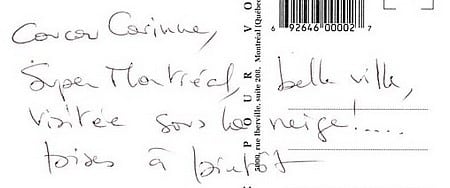 Coucou Corinne,
Super Montréal, belle ville,
visitée sous la neige!.....
bises à bientôt
6 92646 00002 7
POUR VO
5000, rue Iberville, suite 203, Montréal (Québec